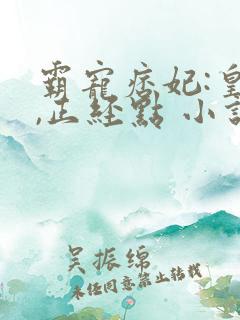 霸寵痞妃:皇
,正經點 小說
吴振绵
未经同意禁止转载